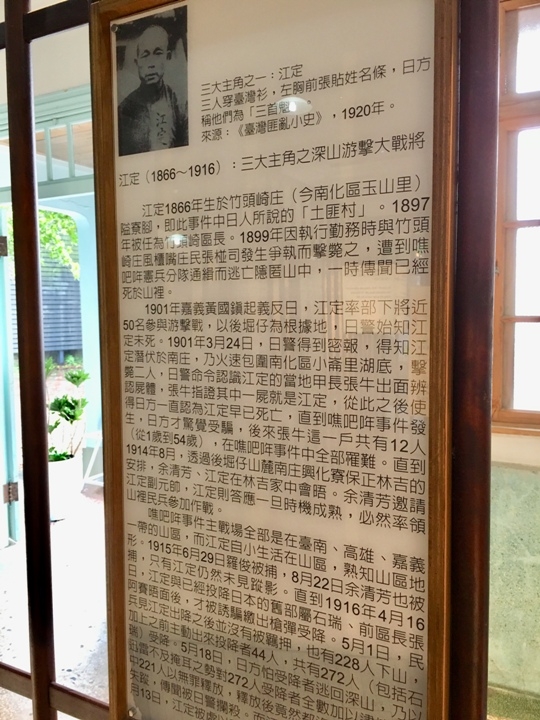 三大主角之一：江定
三人穿臺灣衫，左胸前張貼姓名條，日方
稱他們為「三首魁」。
來源：《臺灣匪亂小史》，1920年。
江定
江定（1866～1916）：三大主角之深山游擊大戰將
江定1866年生於竹頭崎庄（今南化區玉山里）
隘寮腳，即此事件中日人所說的「土匪村」。1897
年被任為竹頭崎區長。1899年因執行勤務時與竹頭
崎庄風櫃嘴庄民張椪司發生爭執而擊斃之，遭到噍
吧哖憲兵分隊通緝而逃亡隱匿山中，一時傳聞已經
死於山裡。
1901年嘉義黃國鎮起義反日，江定率部下將近
50名參與游擊戰，以後堀仔為根據地，日警始知江
定未死。1901年3月24日，日警得到密報，得知江
定潛伏於南庄，乃火速包圍南化區小崙里湖底，擊
斃二人，日警命令認識江定的當地甲長張牛出面辨
認屍體，張牛指證其中一屍就是江定，從此之後使
得日方一直認為江定早已死亡，直到噍吧哖事件發
生，日方才驚覺受騙，後來張牛這一戶共有12人
（從1歲到54歲），在噍吧哖事件中全部罹難。直到
1914年8月，透過後堀仔山麓南庄興化寮保正林吉的
安排，余清芳、江定在林吉家中會晤。余清芳邀請
江定副元帥，江定則答應一旦時機成熟，必然率領
山裡民兵參加作戰。
噍吧哖事件主戰場全部是在臺南、高雄、嘉義
一帶的山區，而江定自小生活在山區，熟知山區地
形。1915年6月29日羅俊被捕，8月22日余清芳也被
捕，只有江定仍然未見蹤影。直到1916年4月16
日，江定與已經投降日本的舊部屬石瑞、前區長張
阿賽晤面後，才被誘騙繳出槍彈受降。5月1日，民
兵見江定出降之後並沒有被羈押，也有228人下山，
加上之前主動出來投降者44人，共有272人（包括石
瑞）受降。5月18日，日方怕受降者逃回深山，乃以
迅雷不及掩耳之勢對272人受降者全數加以
中221人以無罪釋放，釋放後竟然都
失蹤，傳聞被日警攔殺。而
月13日，江定被處